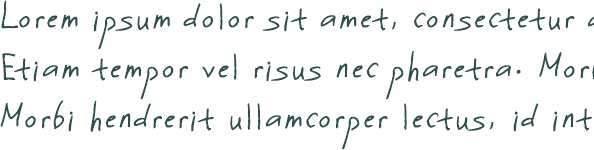 Lorem ipsum dolor sit amet, consectetur a
Etiam tempor vel risus nec pharetra. Mori
Morbi hendrerit ullamcorper lectus, id int